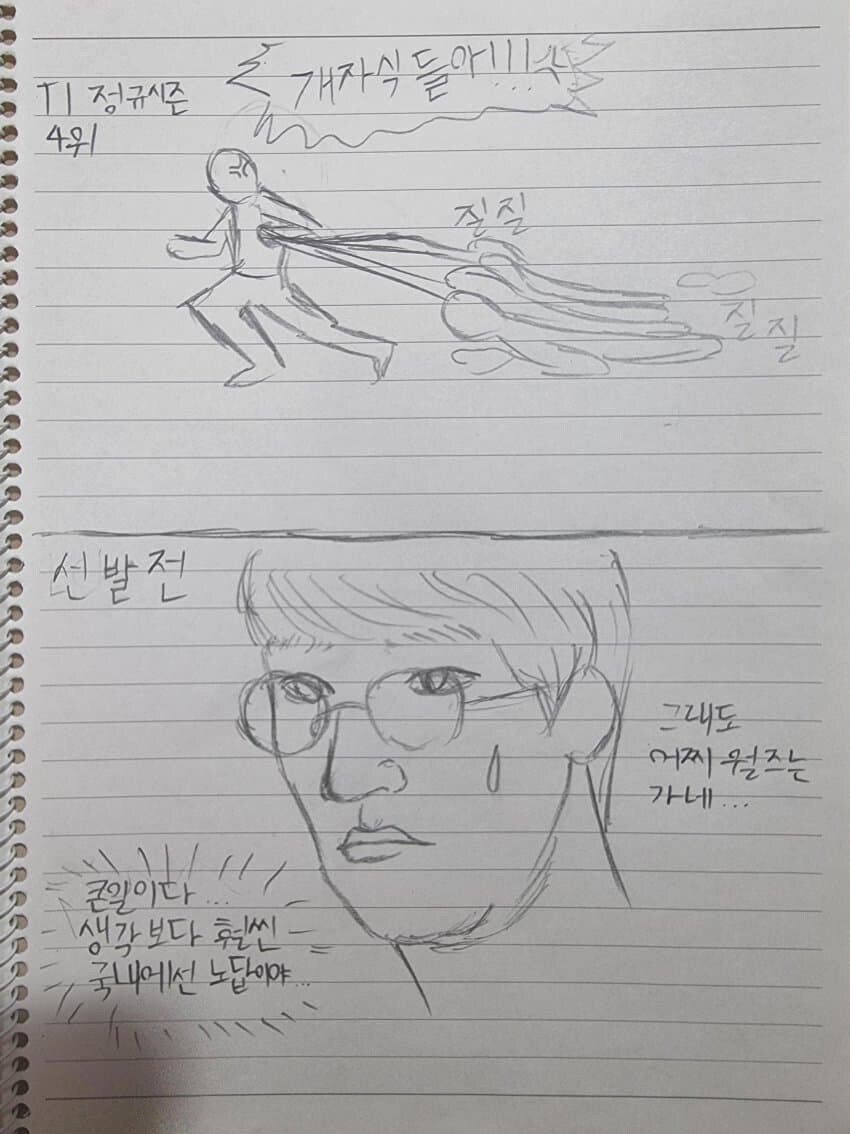 T1 정규시즌
4위
개자식들아!!!
질질
질질
선발전
그래도
어찌 월즈는
가네...
큰일이다...
생각보다 훨씬
국내에선 노답이야...